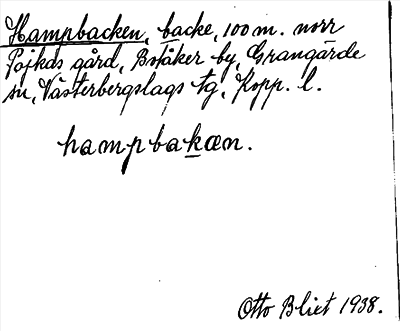 Hampbacken, backe, 100 m. norr
Pojkds gård, Bsåker by, Grangärde
sn, Västerbergslags tg, Kopp. l.
hampbakæn.
Otto Blixt 1938.